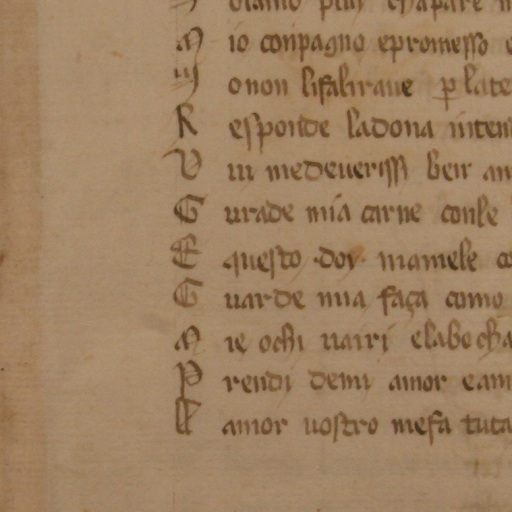 M io conpagno epromesso
onon lifalirave p late
R esponde ladona inten
V ui medeverissi beir am
G uarde mia carne conle
E questo doy mamele co
G uarde mia faça como
M ie ochi vairi elabocha
P rendi demi amor eam
L amor vostro mefa tuta